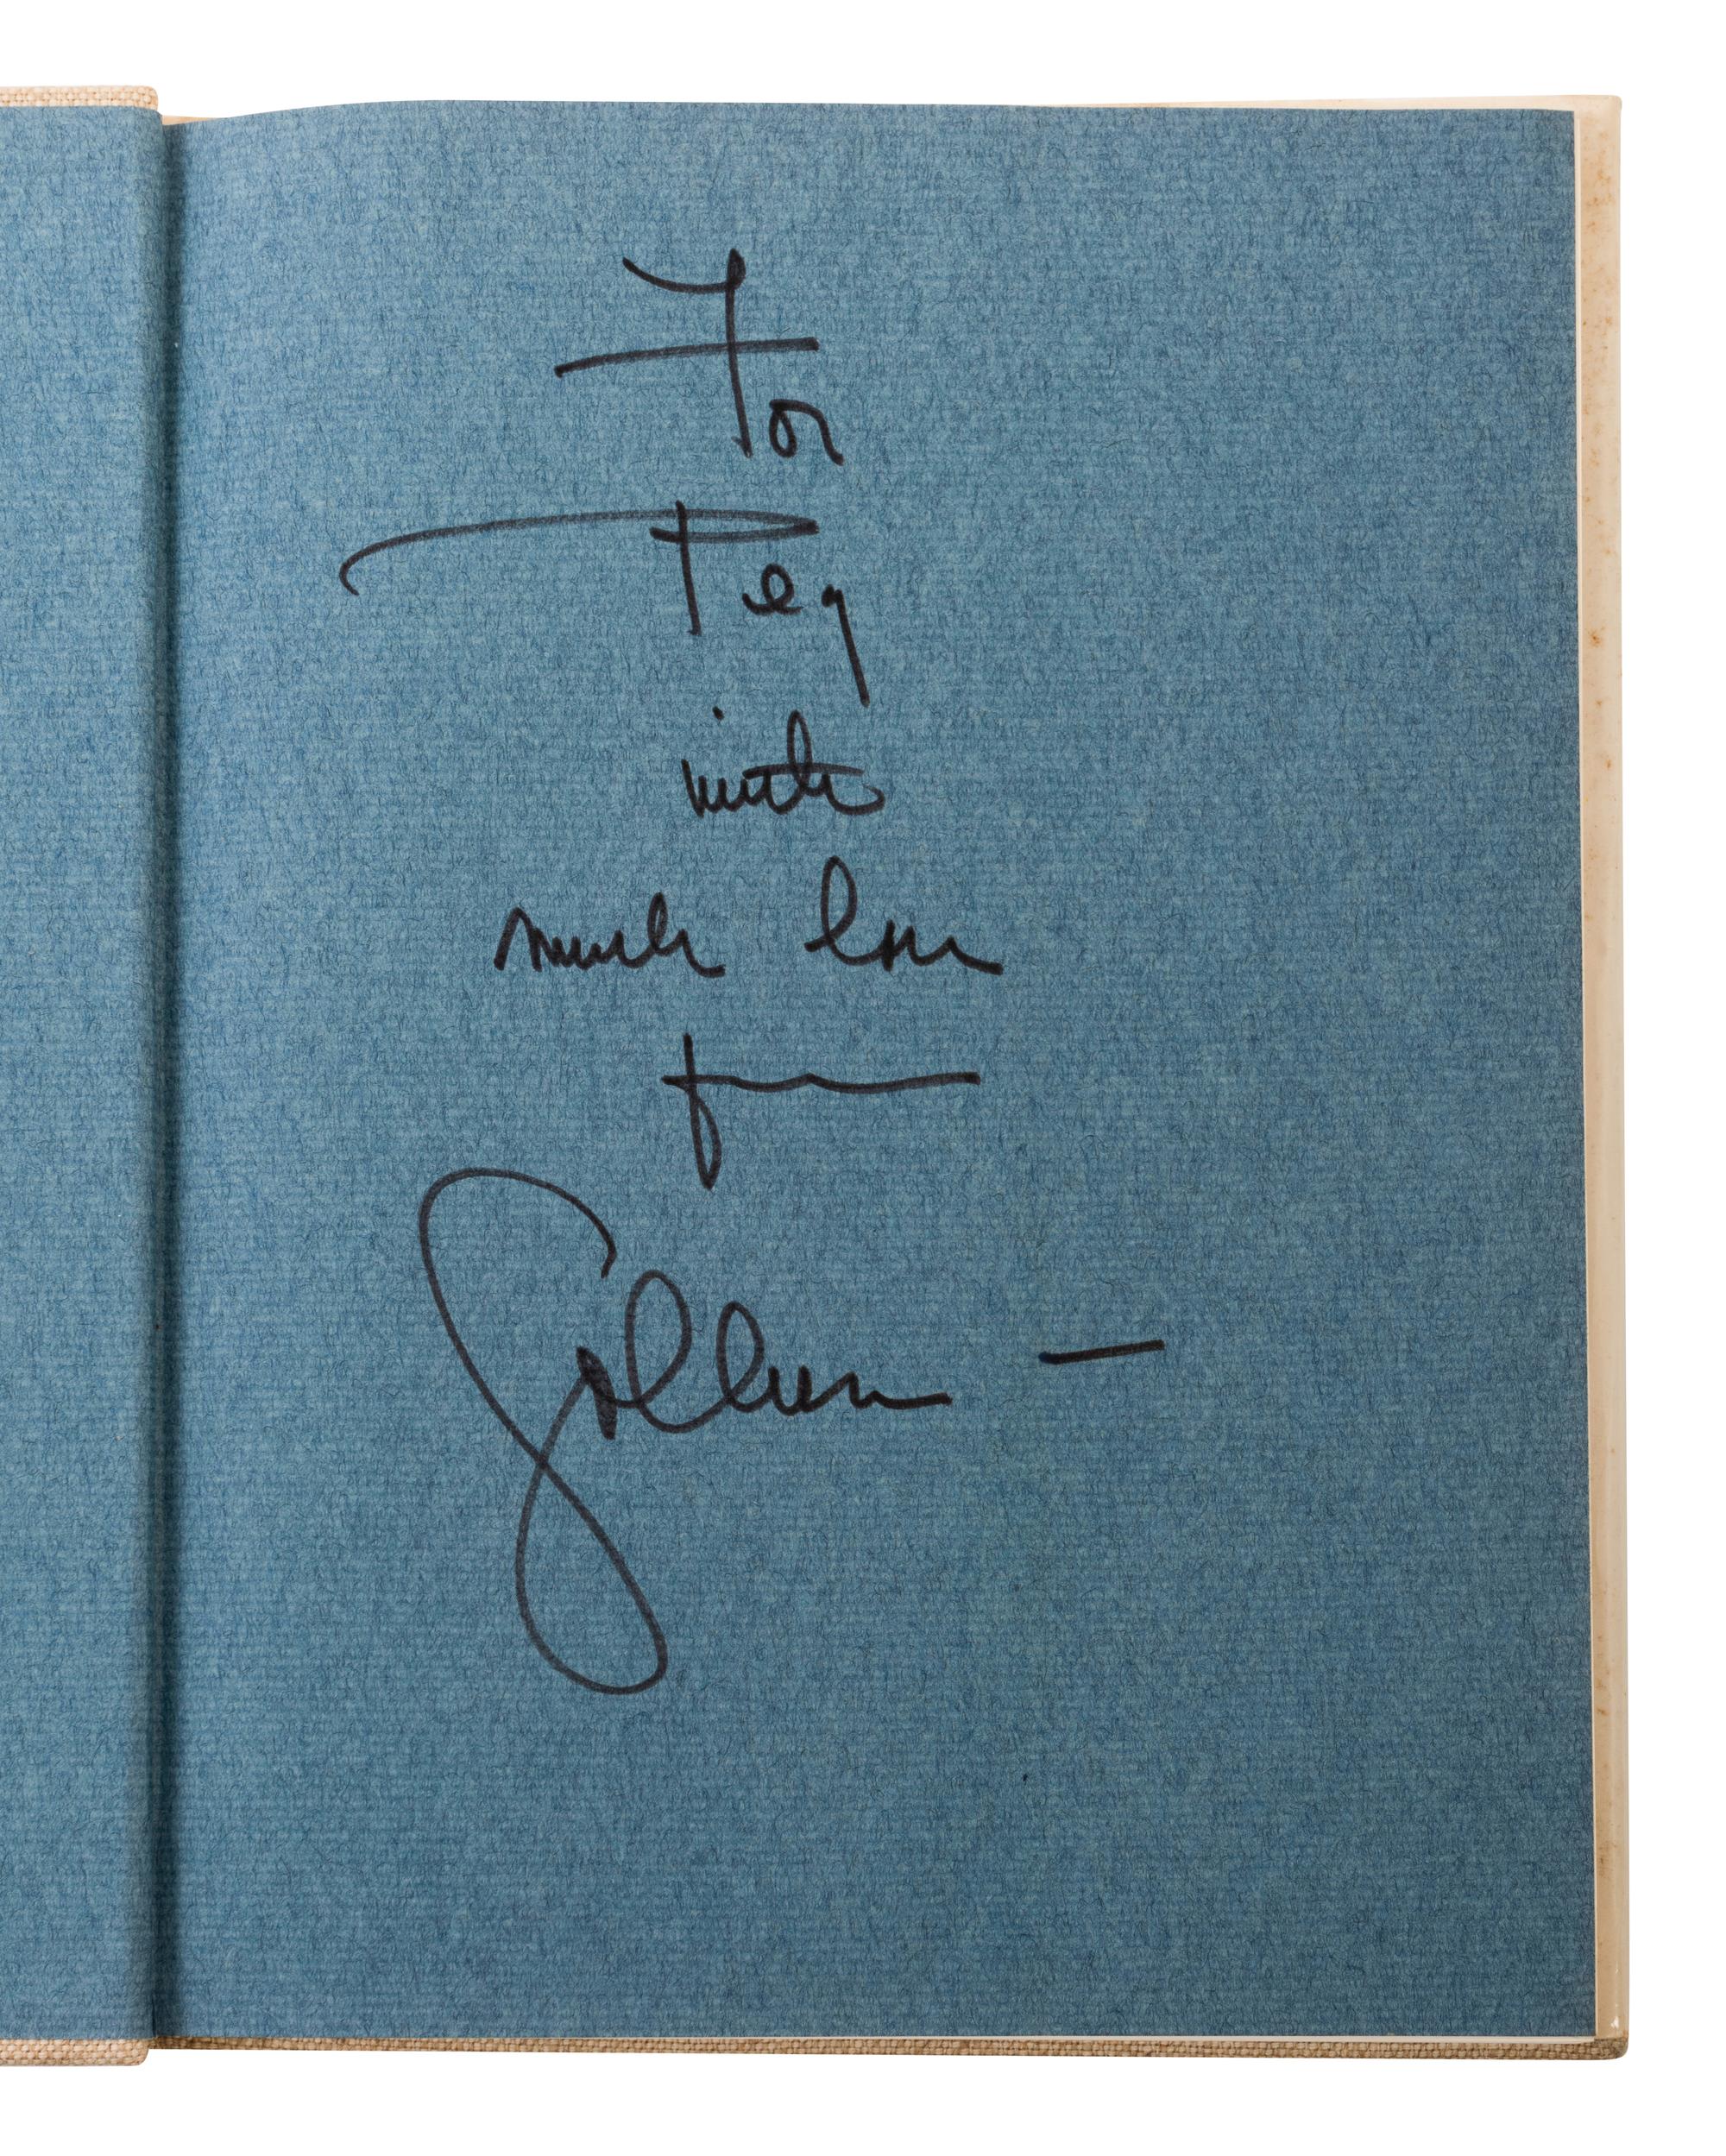 For
Peg
with
much love
from
Colleen —